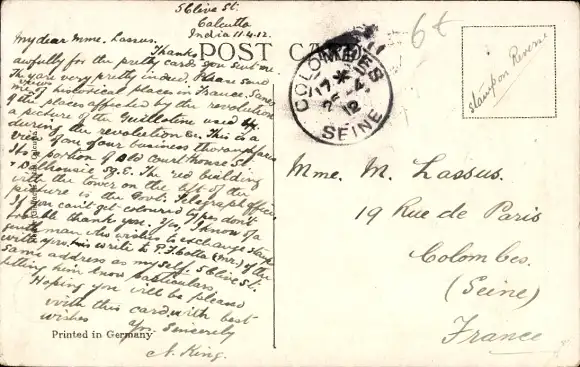 5 Clive St.
Calcutta
India 11.4.12.
My dear Mme. Lassus.
Thanks
awfully for the pretty cards you sent me.
They are very pretty indeed. Please send
me views of historical places in France. Some
of the places affected by the revolution
a picture of the Guillotine used
during the revolution &c. This is a
view of one of our business thoroughfares
Its a portion of Old Court House St.
& Dalhousie Sq. E. The red building
with the tower on the left of the
picture is the Govt. Telegraph office.
If you can't get coloured types don't
trouble thank you. Yes, I know of a
gentleman who wishes to exchange stamps
with you. write to P. (Mr.) of the
same address as myself. 5 Clive St.
letting him know particulars.
Hoping you will be pleased
with this card, with best
wishes
Yrs. Sincerely
A. King.
Printed in Germany
POST CARD
COLOMBES
17 * 
25 - 4
12
SEINE
6t
Stamp on Reverse
Mme. M. Lassus.
19 Rue de Paris
Colombes.
(Seine)
France